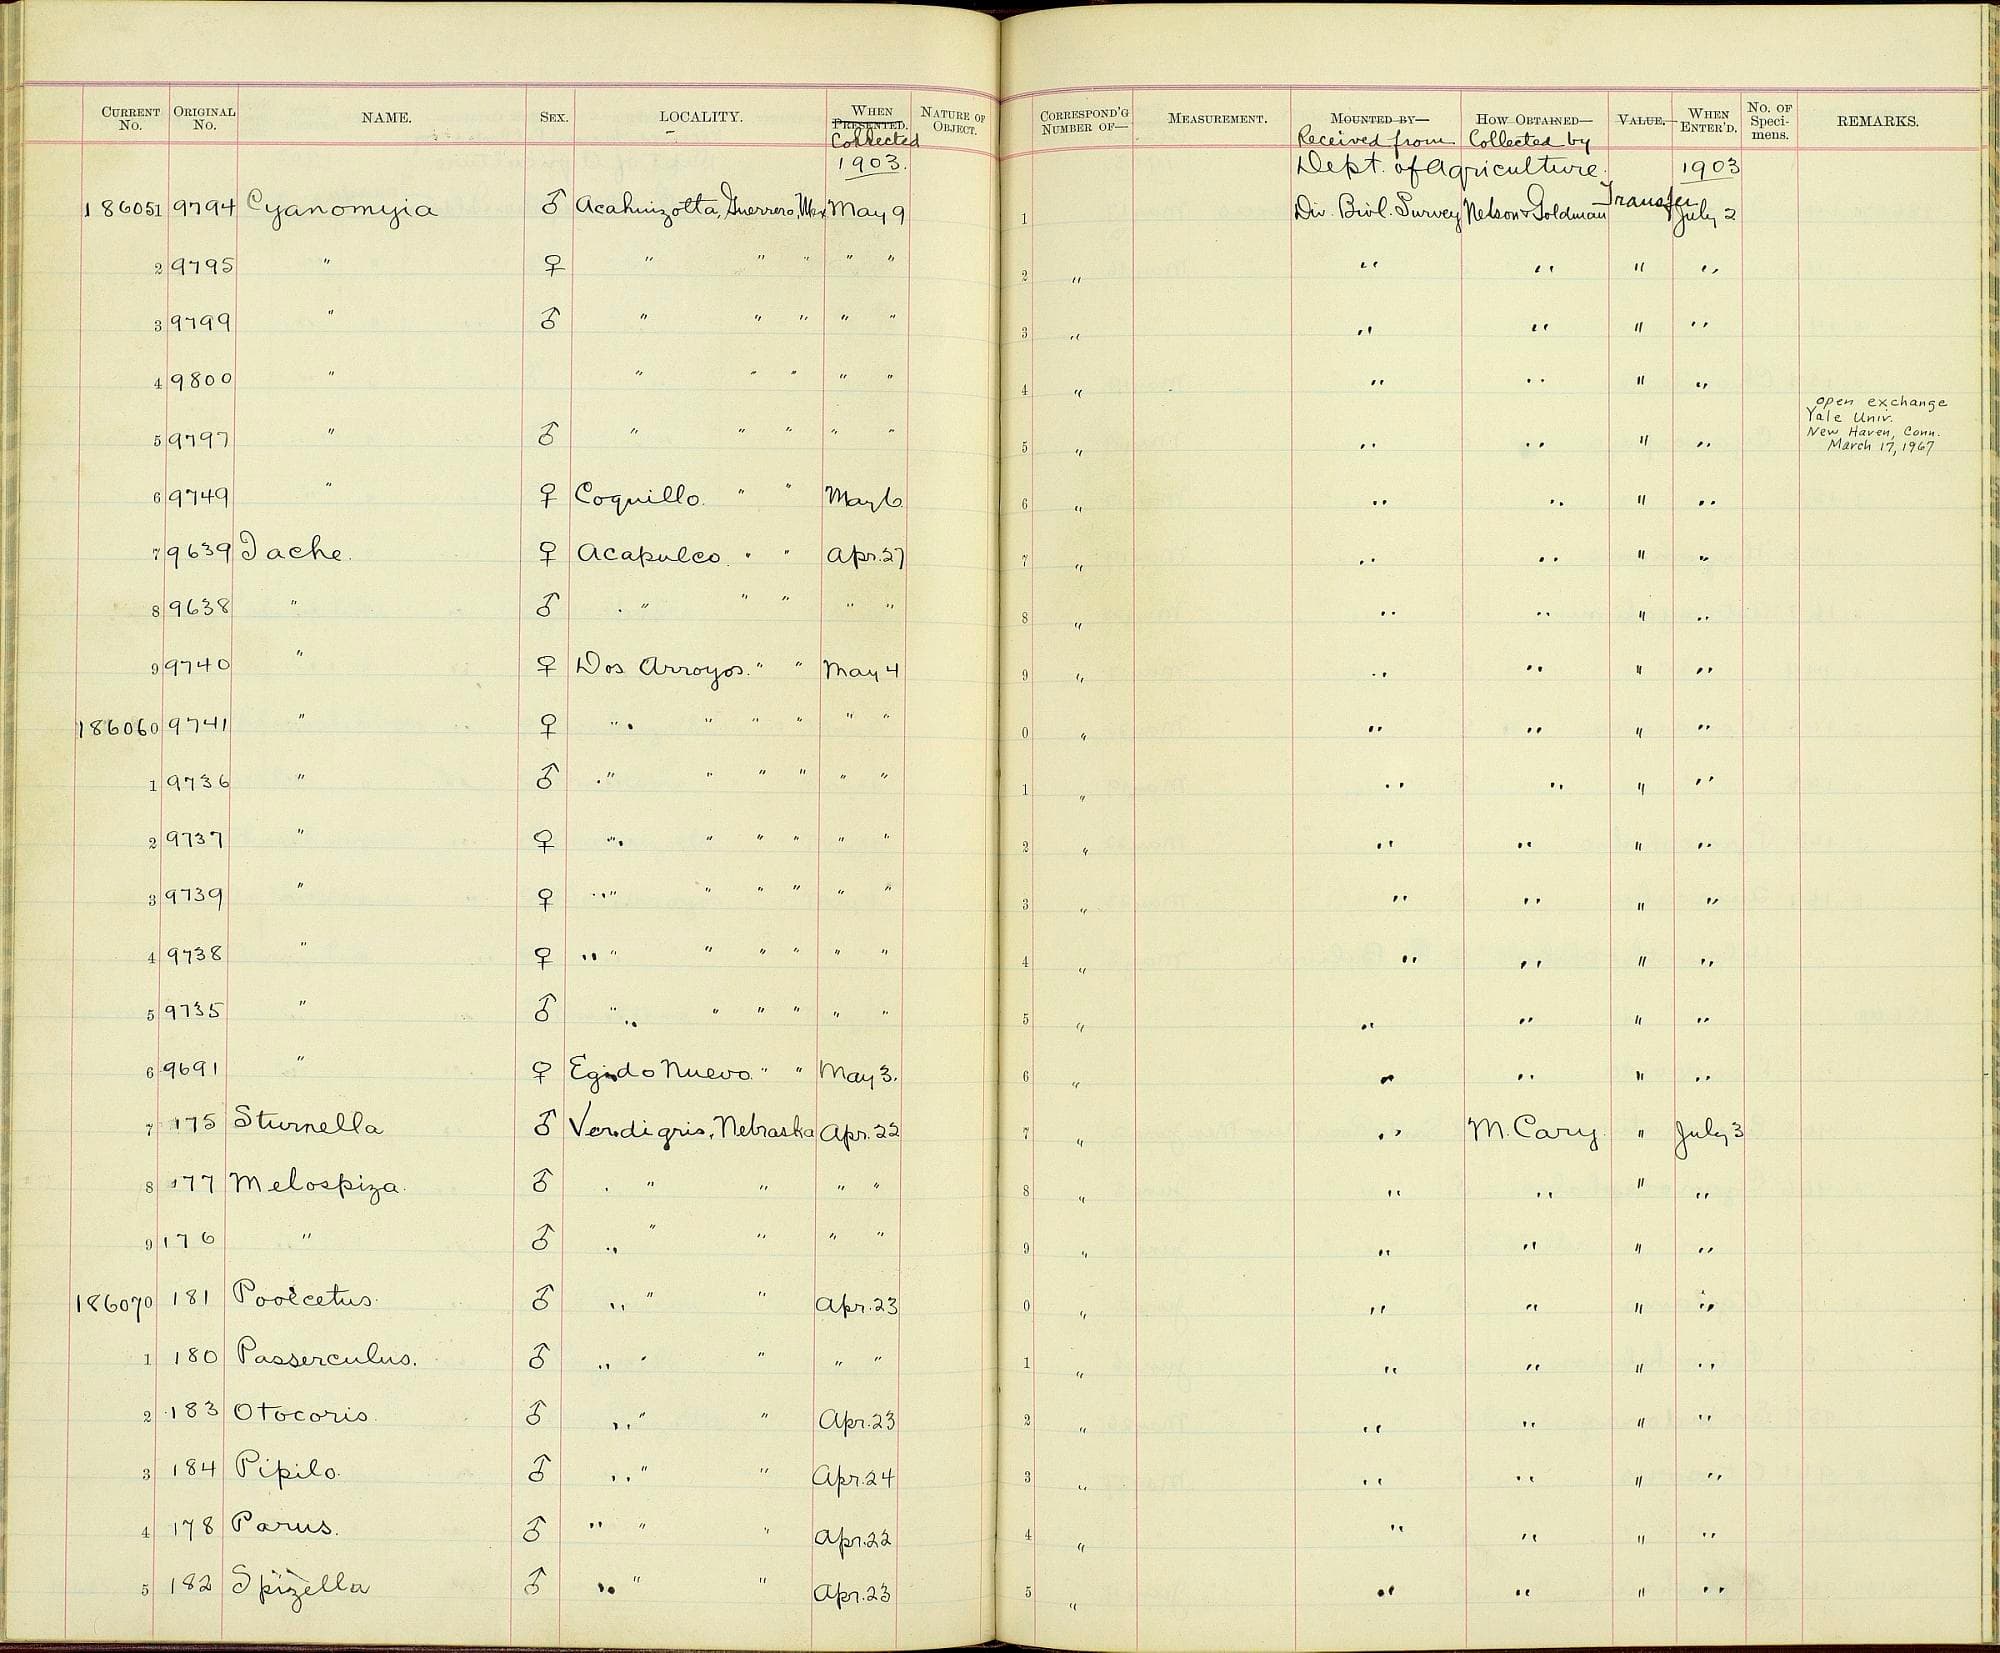 CURRENT No. ORIGINAL No. NAME. SEX. LOCALITY. WHEN PRESENTED. Collected NATURE OF OBJECT.
1903.
186051 9794 Cyanomyia ♂ Acahuizotla, Guerrero, Mex May 9
2 9795 " ♀ " " " " "
3 9799 " ♂ " " " " "
4 9800 " " " " " "
5 9797 " ♂ " " " " "
6 9749 " ♀ Coquillo. " " May 6
7 9639 Iache. ♀ Acapulco. " " Apr. 27
8 9638 " ♂ " " " " "
9 9740 " ♀ Dos Arroyos. " " May 4
186060 9741 " ♀ " " " " " "
1 9736 " ♂ " " " " " "
2 9737 " ♀ " " " " " "
3 9739 " ♀ " " " " " "
4 9738 " ♀ " " " " " "
5 9735 " ♂ " " " " " "
6 9691 " ♀ Egido Nuevo. " " May 3.
7 175 Sturnella ♂ Verdigris, Nebraska Apr. 22
8 177 Melospiza. ♂ " " " "
9 176 " ♂ " " " "
186070 181 Pooecetus. ♂ " " Apr. 23
1 180 Passerculus. ♂ " " " "
2 183 Otocoris. ♂ " " Apr. 23
3 184 Pipilo. ♂ " " Apr. 24
4 178 Parus. ♂ " " Apr. 22
5 182 Spizella ♂ " " Apr. 23
CORRESPOND'G NUMBER OF— MEASUREMENT. MOUNTED BY— Received from HOW OBTAINED— Collected by VALUE. WHEN ENTER'D. No. OF Speci-mens. REMARKS.
Dept. of Agriculture. 1903
1 Div. Biol. Survey Nelson & Goldman Transfer July 2
2 " " " " "
3 " " " " "
4 " " " " "
open exchange
Yale Univ.
New Haven, Conn.
March 17, 1967
5 " " " " "
6 " " " " "
7 " " " " "
8 " " " " "
9 " " " " "
0 " " " " "
1 " " " " "
2 " " " " "
3 " " " " "
4 " " " " "
5 " " " " "
6 " " " " "
7 " " M. Cary. " July 3
8 " " " " "
9 " " " " "
0 " " " " "
1 " " " " "
2 " " " " "
3 " " " " "
4 " " " " "
5 " " " " "